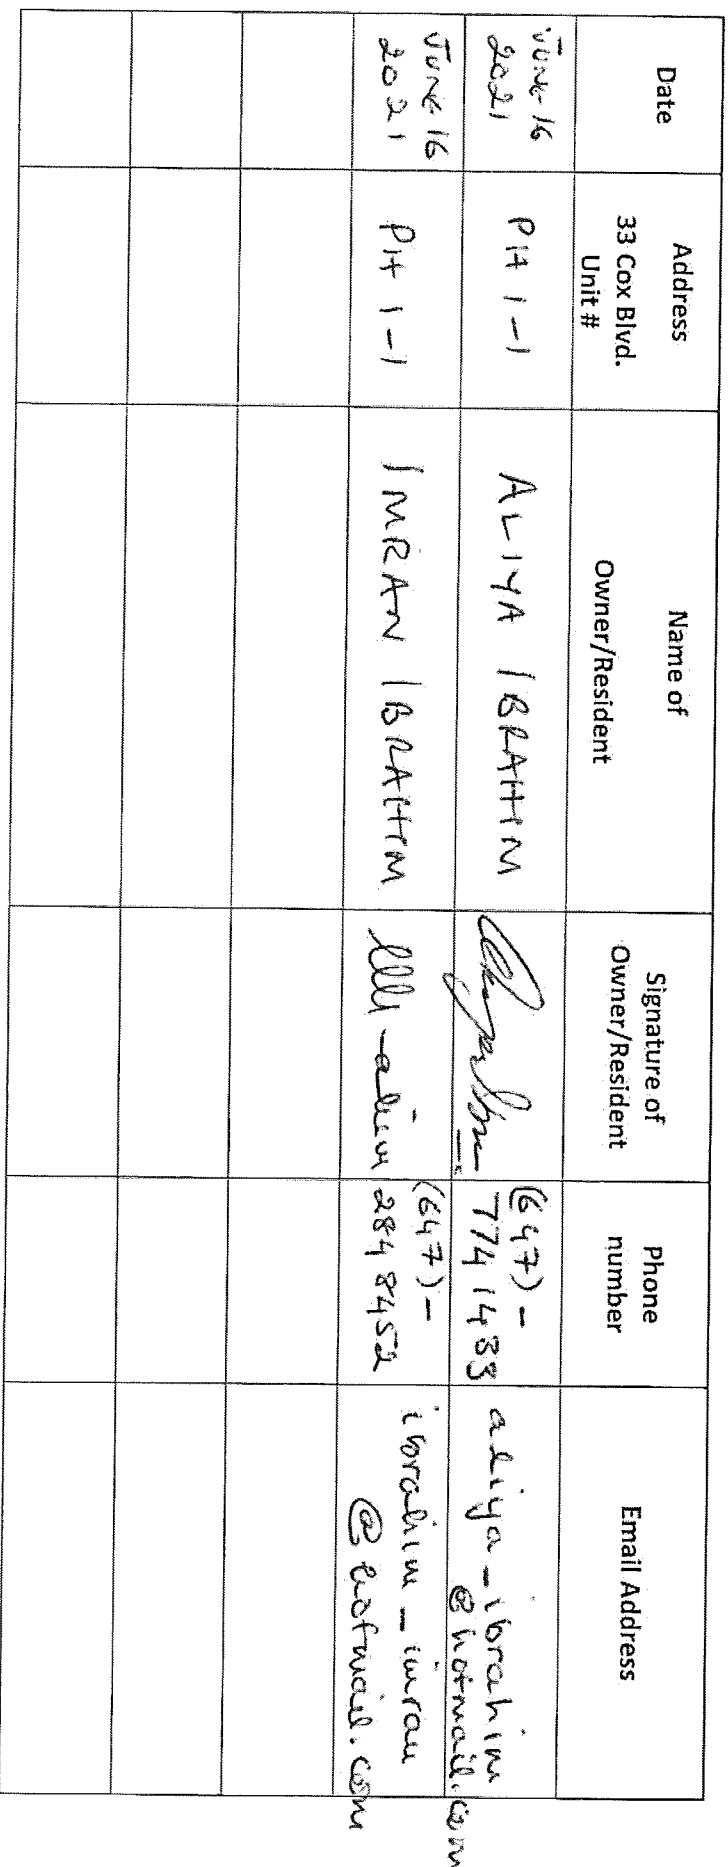 Date
Address
33 Cox Blvd.
Unit #
Name of
Owner/Resident
Signature of
Owner/Resident
Phone
number
Email Address
JUNE 16
2021
PH 1-1
ALIYA IBRAHIM
(647)-
774 1433
aliya_ibrahim
@hotmail.com
JUNE 16
2021
PH 1-1
IMRAN IBRAHIM
(647)-
284 8452
ibrahim_imran
@hotmail.com